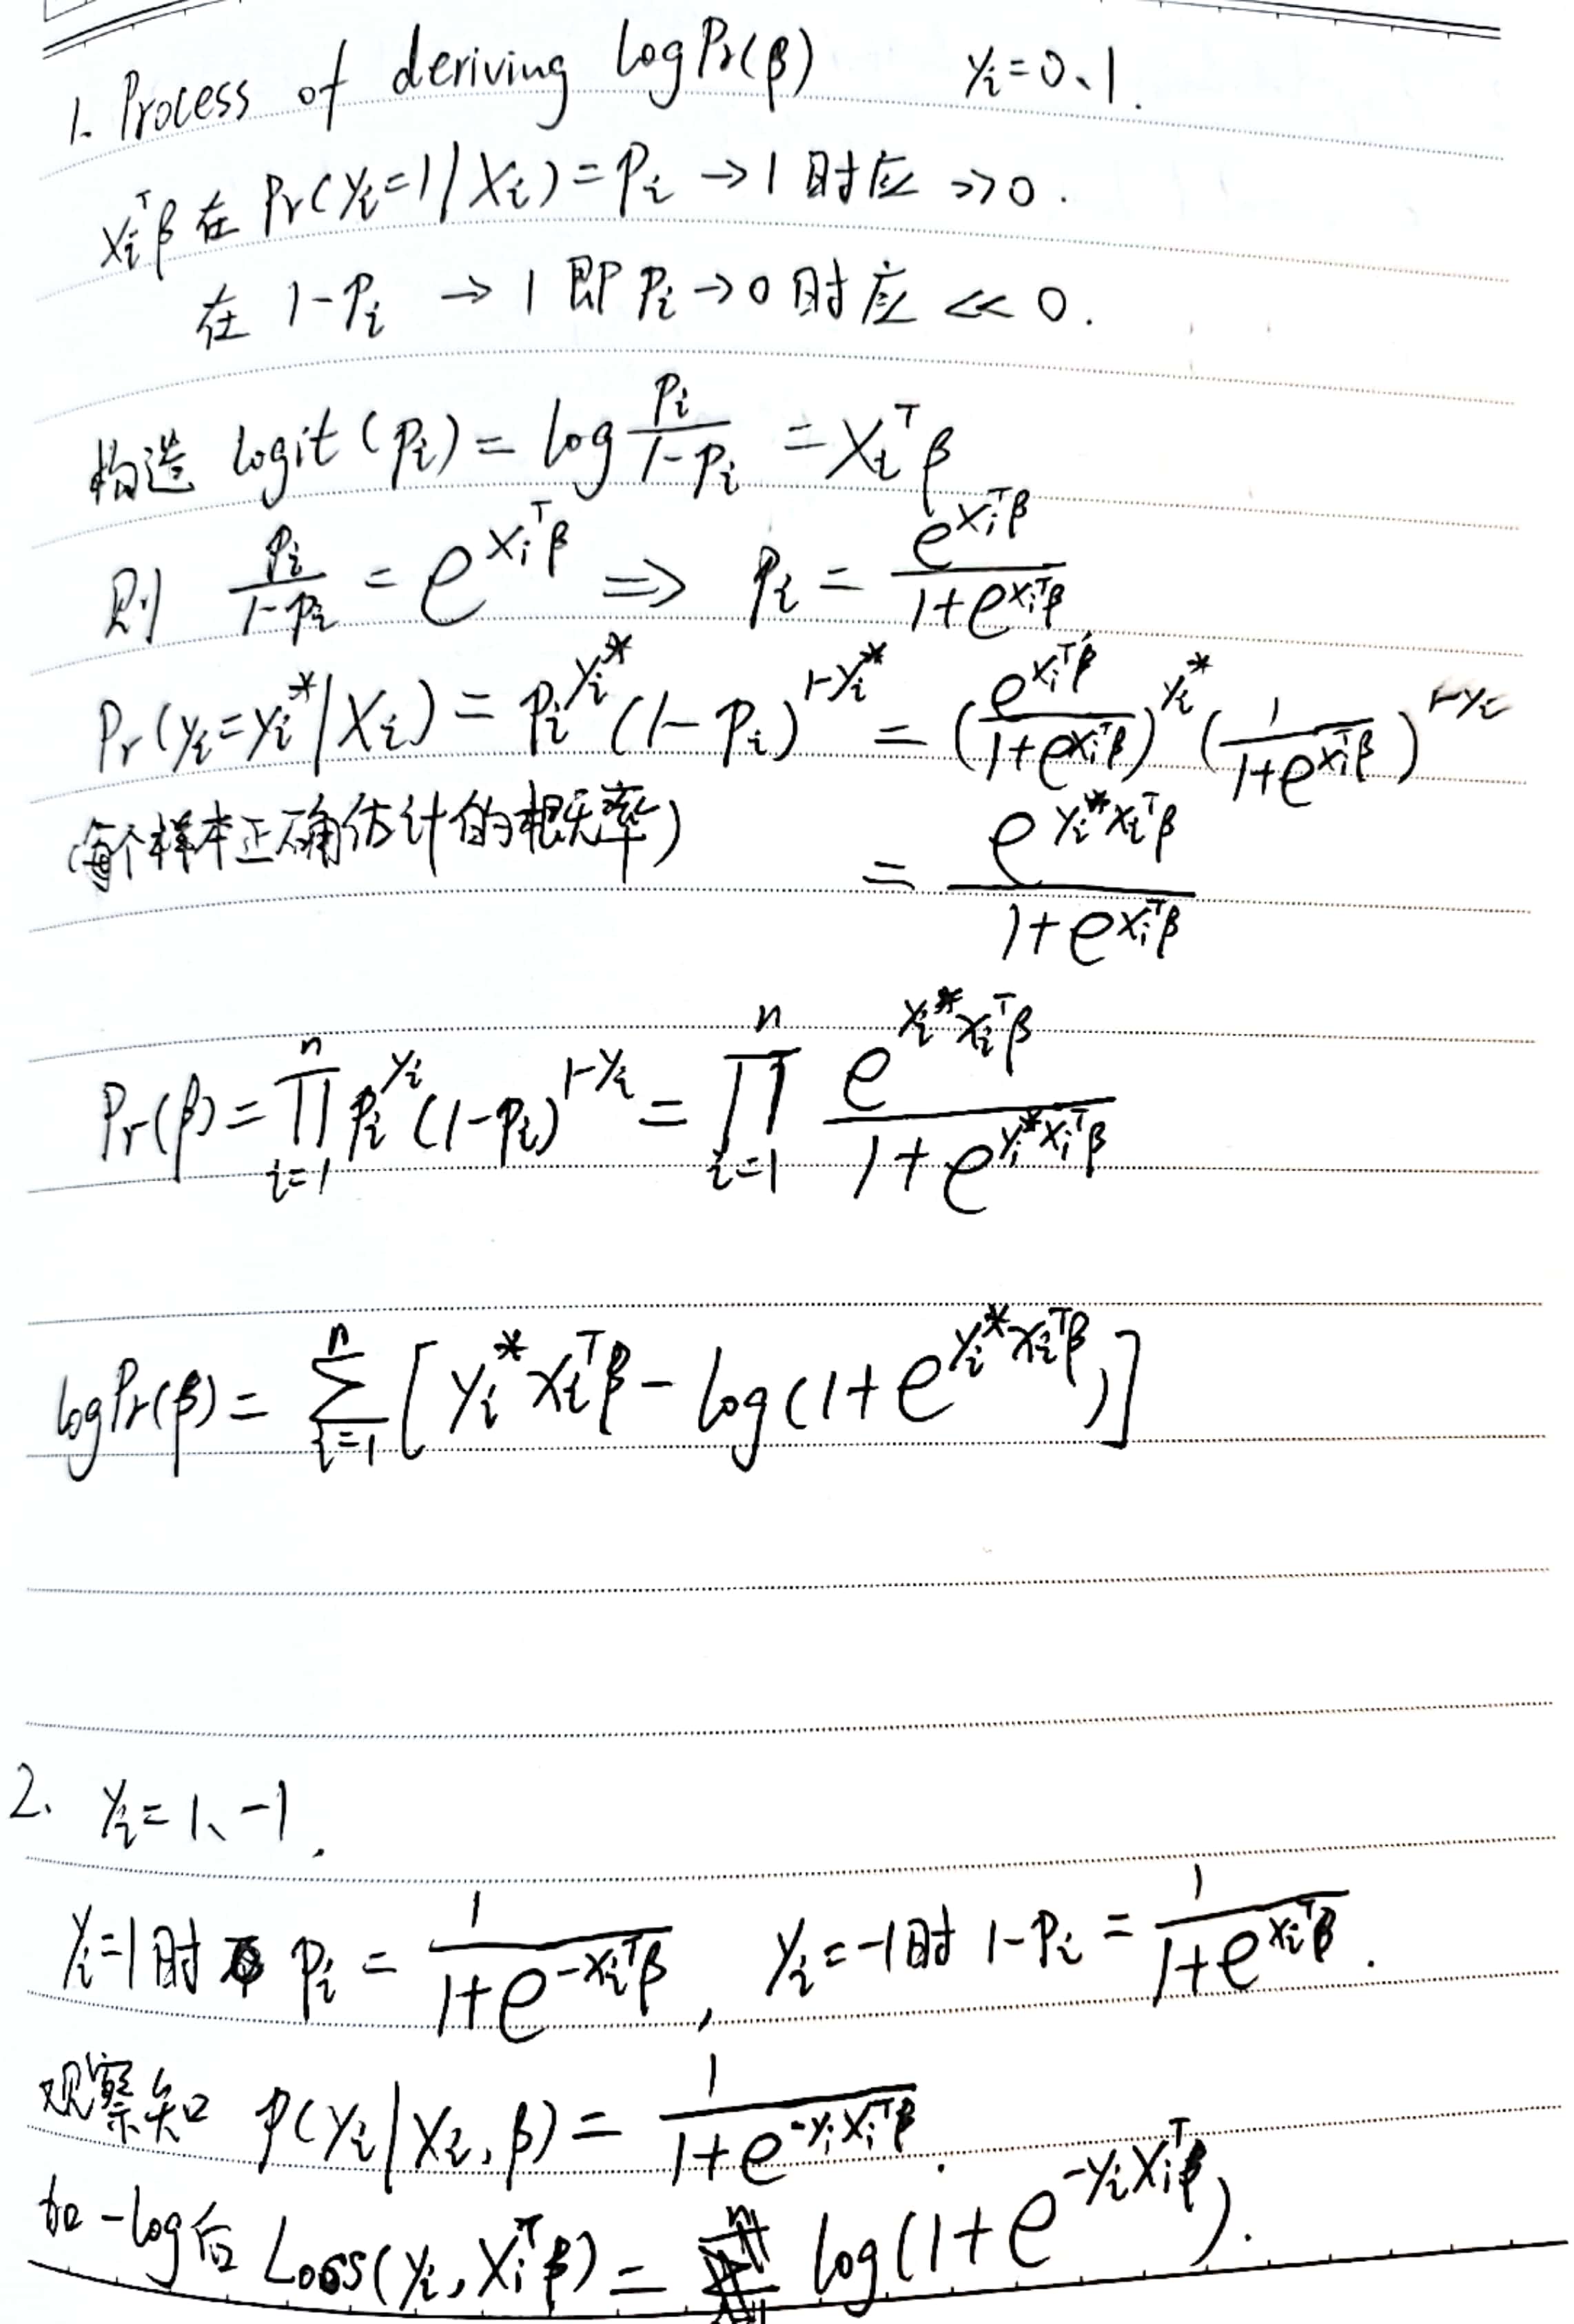 1. Process of deriving logPr(β) yᵢ=0、1.
Xᵢᵀβ 在 Pr(yᵢ=1|Xᵢ)=Pᵢ →1 时应 >>0.
在 1-Pᵢ →1 即 Pᵢ→0 时应 << 0.
构造 logit(pᵢ) = log pᵢ/(1-pᵢ) = Xᵢᵀβ
则 pᵢ/(1-pᵢ) = e^(Xᵢᵀβ) ⇒ pᵢ = e^(Xᵢᵀβ)/(1+e^(Xᵢᵀβ))
Pr(yᵢ=yᵢ*|Xᵢ) = pᵢ^(yᵢ*) (1-pᵢ)^(1-yᵢ*) = (e^(Xᵢᵀβ)/(1+e^(Xᵢᵀβ)))^(yᵢ*) (1/(1+e^(Xᵢᵀβ)))^(1-yᵢ)
(每个样本正确估计的概率) = e^(yᵢ*Xᵢᵀβ)/(1+e^(Xᵢᵀβ))
Pr(β) = ∏_(i=1)^n pᵢ^(yᵢ) (1-pᵢ)^(1-yᵢ) = ∏_(i=1)^n e^(yᵢ*Xᵢᵀβ)/(1+e^(yᵢ*Xᵢᵀβ))
logPr(β) = ∑_(i=1)^n [yᵢ*Xᵢᵀβ - log(1+e^(yᵢ*Xᵢᵀβ))]
2. yᵢ=1、-1.
yᵢ=1时 pᵢ = 1/(1+e^(-Xᵢᵀβ)), yᵢ=-1时 1-Pᵢ = 1/(1+e^(Xᵢᵀβ)).
观察知 p(yᵢ|Xᵢ,β) = 1/(1+e^(-yᵢXᵢᵀβ)).
加-log后 Loss(yᵢ, Xᵢᵀβ) = log(1+e^(-yᵢXᵢᵀβ)).